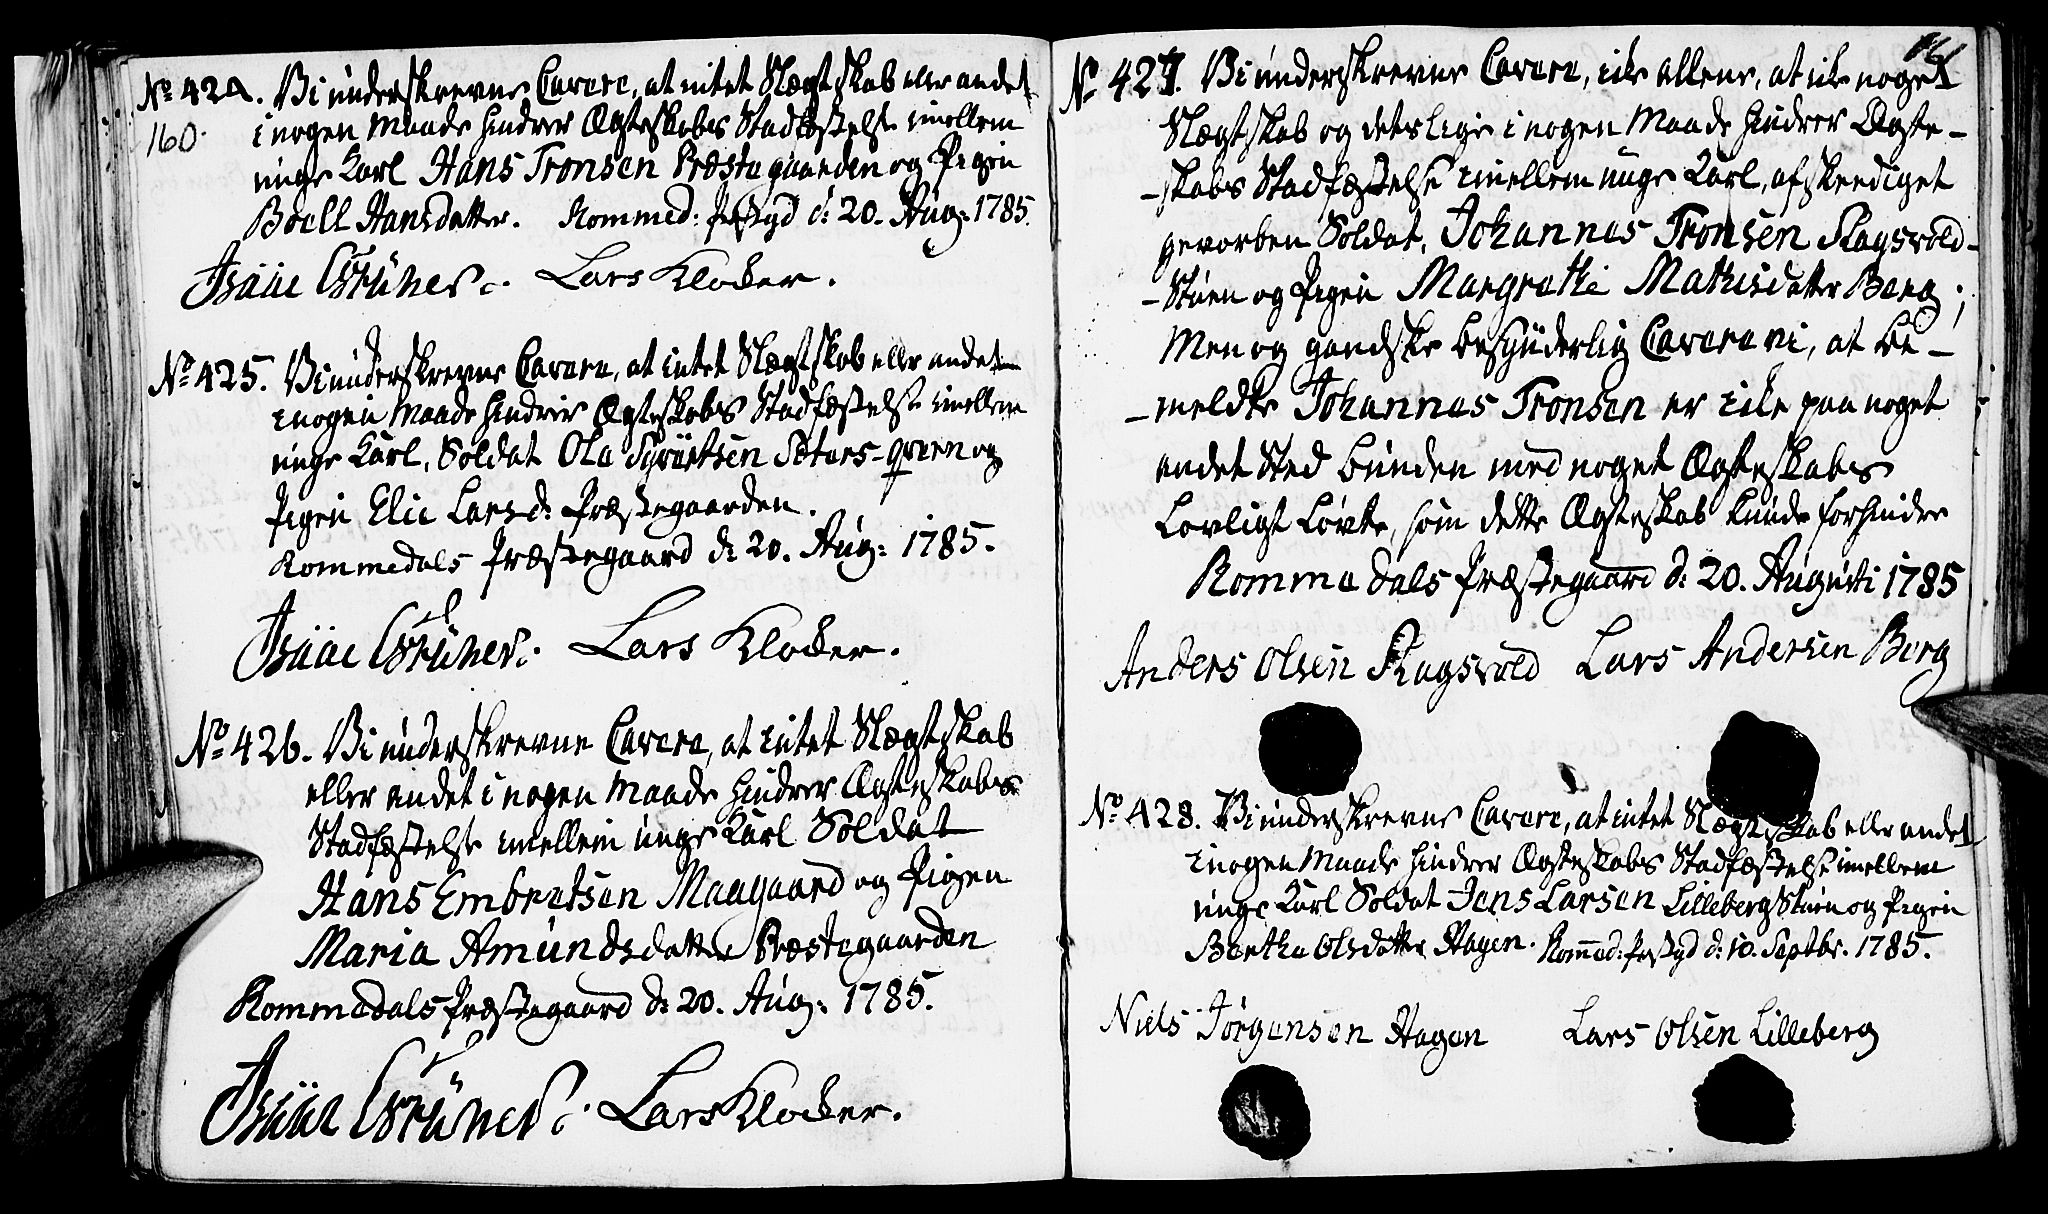 No 424. Vi underskrevne Cavere, at intet Slægtskab eller andet
160.
i nogen Maade hindrer Ægteskabs Stadfæstelse imellem
unge Karl Hans Tronsen Præstegaarden og Pigen
Boell Hansdatter. Rommed: Præstgd d: 20. Aug: 1785.
Isaac Grüner. Lars Klocker.
No 425. Vi underskrevne Cavere, at intet Slægtskab eller andet
i nogen Maade hindrer Ægteskabs Stadfæstelse imellem
unge Karl, Soldat Ola Syvertsen Sæters-qvern og
Pigen Elie Larsd: Præstegaarden.
Rommedals Præstegaard d: 20. Aug: 1785.
Isaac Grüner. Lars Klocker.
No 426. Vi underskrevne Cavere, at intet Slægtskab
eller andet i nogen Maade hindrer Ægteskabs
Stadfæstelse imellem unge Karl Soldat
Hans Embretsen Maagaard og Pigen
Maria Amundsdatter Præstegaarden
Rommedals Præstegaard d: 20. Aug: 1785.
Isaac Grüner. Lars Klocker.
161
No 427. Vi underskrevne Cavere, ike allene, at ike noget
Slægtskab og deslige i nogen Maade hindrer Ægte-
-skabs Stadfæstelse imellem unge Karl, afskeediget
gevorben Soldat, Johannes Tronsen Skagsvold-
-Stuen og Pigen Margrethe Mathisdatter Berg;
Men og gandske besynderlig Cavere vi, at be-
-meldte Johannes Tronsen er ike paa noget
andet Sted bunden med noget Ægteskabs
Lovligt Løvte, som dette Ægteskab kunde forhindre
Rommedals Præstegaard d: 20. Augusti 1785
Anders Olsen Skagsvold Lars Andersen Berg
No 428. Vi underskrevne Cavere, at intet Slægtskab eller andet
i nogen Maade hindrer Ægteskabs Stadfæstelse imellem
unge Karl Soldat Jens Larsen Lilleberg Stuen og Pigen
Berthe Olsdatter Hagen. Rommed: Præstgd d: 10. Septbr. 1785.
Niels Jørgensen Hagen Lars Olsen Lilleberg